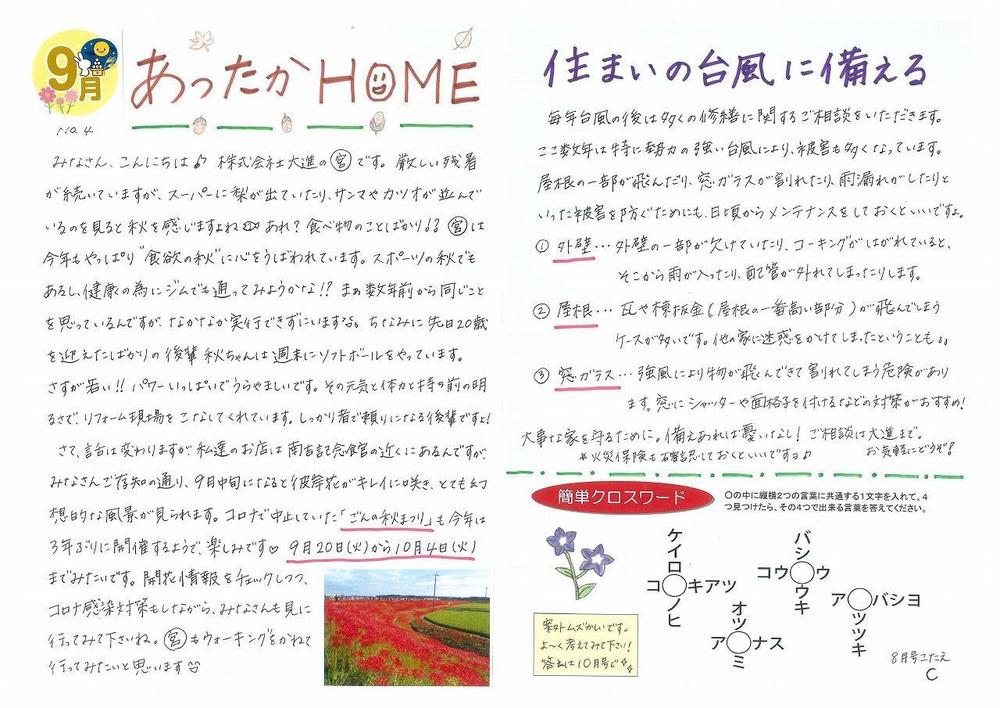 9月
あったかHOME
No.4
みなさん、こんにちは♪ 株式会社大進の宮です。厳しい残暑
が続いていますが、スーパーに梨が出ていたり、サンマやカツオが並んで
いるのを見ると秋を感じますよね あれ？食べ物のことばかり!? 宮は
今年もやっぱり"食欲の秋"に心をうばわれています。スポーツの秋でも
あるし、健康の為にジムでも通ってみようかな!? まぁ数年前から同じこと
を思っているんですが、なかなか実行できずにいますね。ちなみに先日20歳
を迎えたばかりの後輩 秋ちゃんは週末にソフトボールをやっています。
さすが若い!! パワーいっぱいでうらやましいです。その元気と体力と持ち前の明
るさで、リフォーム現場をこなしてくれています。しっかり者で頼りになる後輩ですよ!
さて、話は変わりますが私達のお店は南吉記念館の近くにあるんですが、
みなさんご存知の通り、9月中旬になると彼岸花がキレイに咲き、とても幻
想的な風景が見られます。コロナで中止していた「ごんの秋まつり」も今年は
3年ぶりに開催するようで、楽しみです♡ 9月20日(火)から10月4日(火)
までみたいです。開花情報をチェックしつつ、
コロナ感染対策もしながら、みなさんも見に
行ってみて下さいね。宮もウォーキングをかねて
行ってみたいと思います
住まいの台風に備える
毎年台風の後は多くの修繕に関するご相談をいただきます。
ここ数年は特に勢力の強い台風により、被害も多くなっています。
屋根の一部が飛んだり、窓ガラスが割れたり、雨漏れがしたりと
いった被害を防ぐためにも、日頃からメンテナンスをしておくといいですよ。
① 外壁…外壁の一部が欠けていたり、コーキングがはがれていると、
そこから雨が入ったり、配管が外れてしまったりします。
② 屋根…瓦や棟板金(屋根の一番高い部分)が飛んでしまう
ケースが多いです。他の家に迷惑をかけてしまったということも。。
③ 窓ガラス…強風により物が飛んできて割れてしまう危険があり
ます。窓にシャッターや面格子を付けるなどの対策がおすすめ!
大事な家を守るために。備えあれば憂いなし! ご相談は大進まで。
*火災保険も確認しておくといいですヨ♪ お気軽にどうぞ?
簡単クロスワード
○の中に縦横2つの言葉に共通する1文字を入れて、4
つ見つけたら、その4つで出来る言葉を答えてください。
ケイロ○ノヒ
コ○キアツ
バシ○ウキ
コウ○ウ
オッ○ミ
ア○ナス
ア○バショ
○ツツキ
案外ムズかしいです。
よ〜く考えてみて下さい!
答えは10月号で
8月号こたえ
C